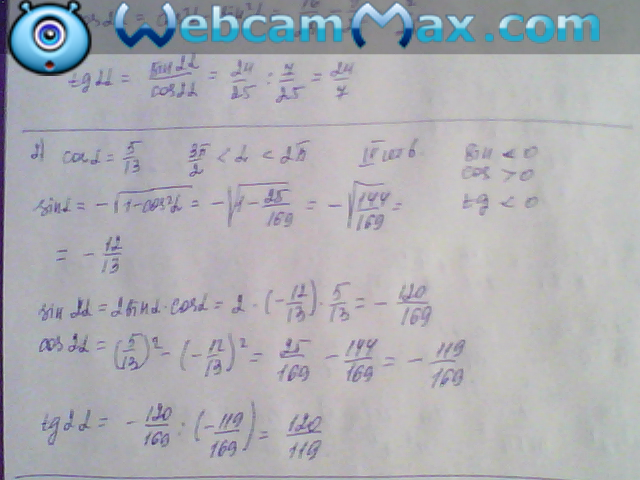 WebcamMax.com
tg2α = sin2α/cos2α = 24/25 : 7/25 = 24/7
2) cosα = 5/13 3π/2 < α < 2π IV sin < 0
cos > 0
sinα = -√(1-cos²α) = -√(1-25/169) = -√(144/169) = tg < 0
= -12/13
sin2α = 2sinα·cosα = 2·(-12/13)·5/13 = -120/169
cos2α = (5/13)² - (-12/13)² = 25/169 - 144/169 = -119/169
tg2α = -120/169 : (-119/169) = 120/119